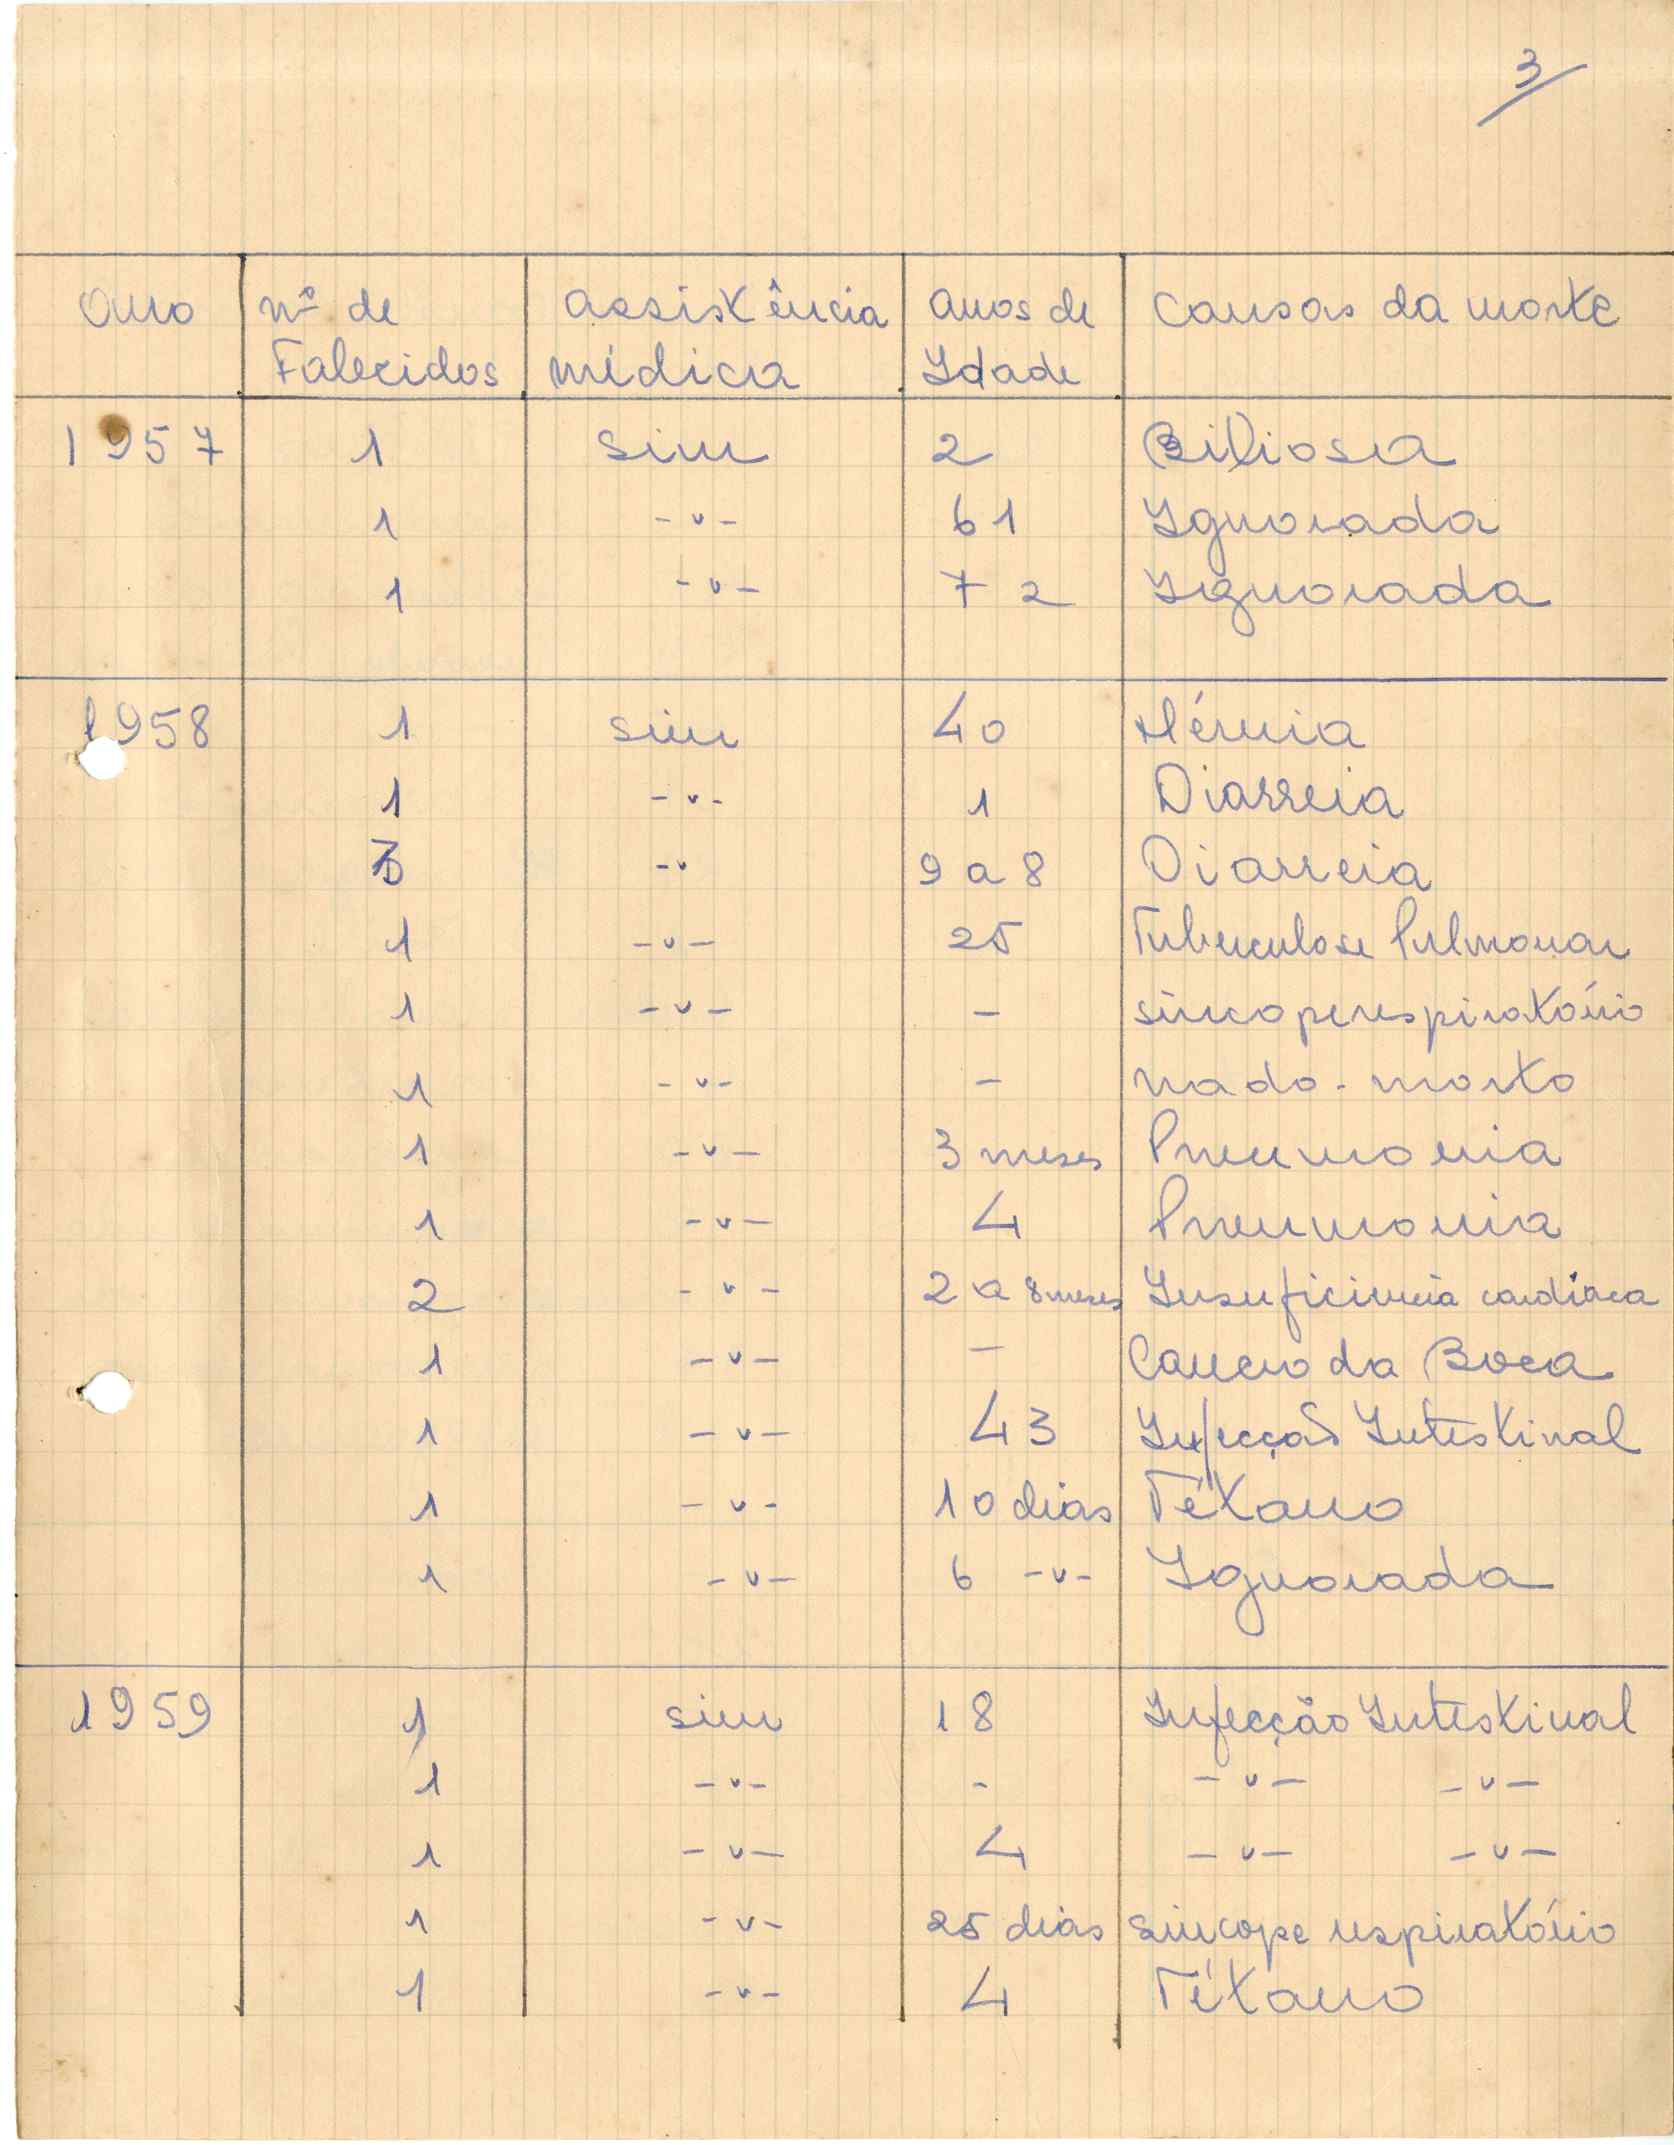 3
Ano nº de Assistência Anos de Causas da morte
Falecidos médica Idade
1957 1 Sim 2 Biliosa
1 -"- 61 Ignorada
1 -"- 72 Ignorada
1958 1 Sim 40 Hérnia
1 -"- 1 Diarreia
3 -" 9 a 8 Diarreia
1 -"- 25 Tuberculose Pulmonar
1 -"- - síncope respiratório
1 -"- - nado-morto
1 -"- 3 meses Pneumonia
1 -"- 4 Pneumonia
2 -"- 2 a 8 meses Insuficiência cardíaca
1 -"- - Cancro da Boca
1 -"- 43 Infecção Intestinal
1 -"- 10 dias Tétano
1 -"- 6 -"- Ignorada
1959 1 sim 18 Infecção Intestinal
1 -"- - -"- -"-
1 -"- 4 -"- -"-
1 -"- 25 dias síncope respiratório
1 -"- 4 Tétano